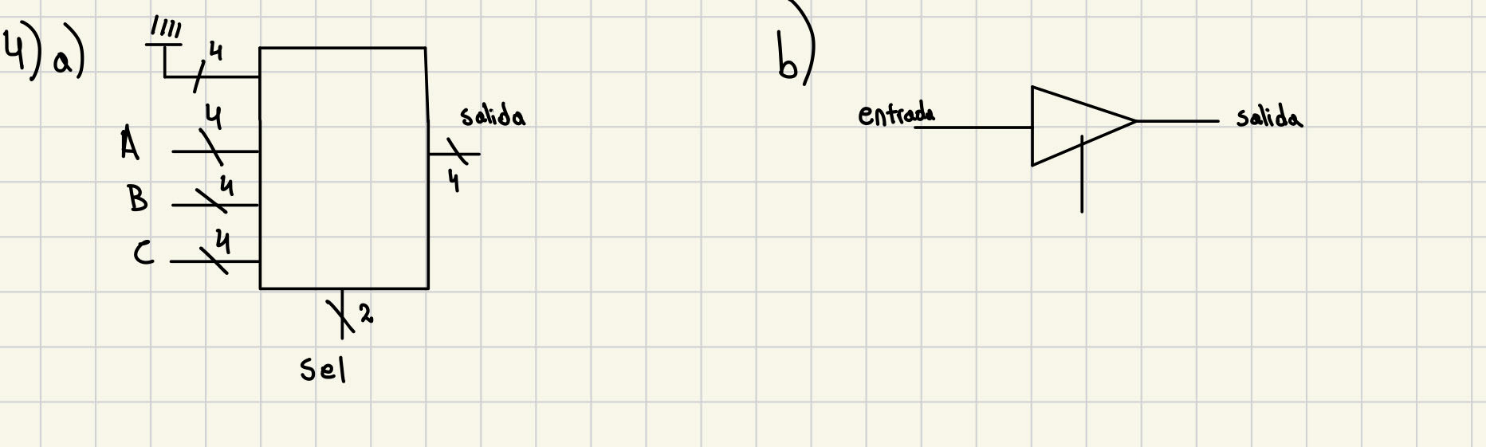 4) a)
4
4
A
4
B
4
C
salida
4
2
Sel
b)
entrada
salida